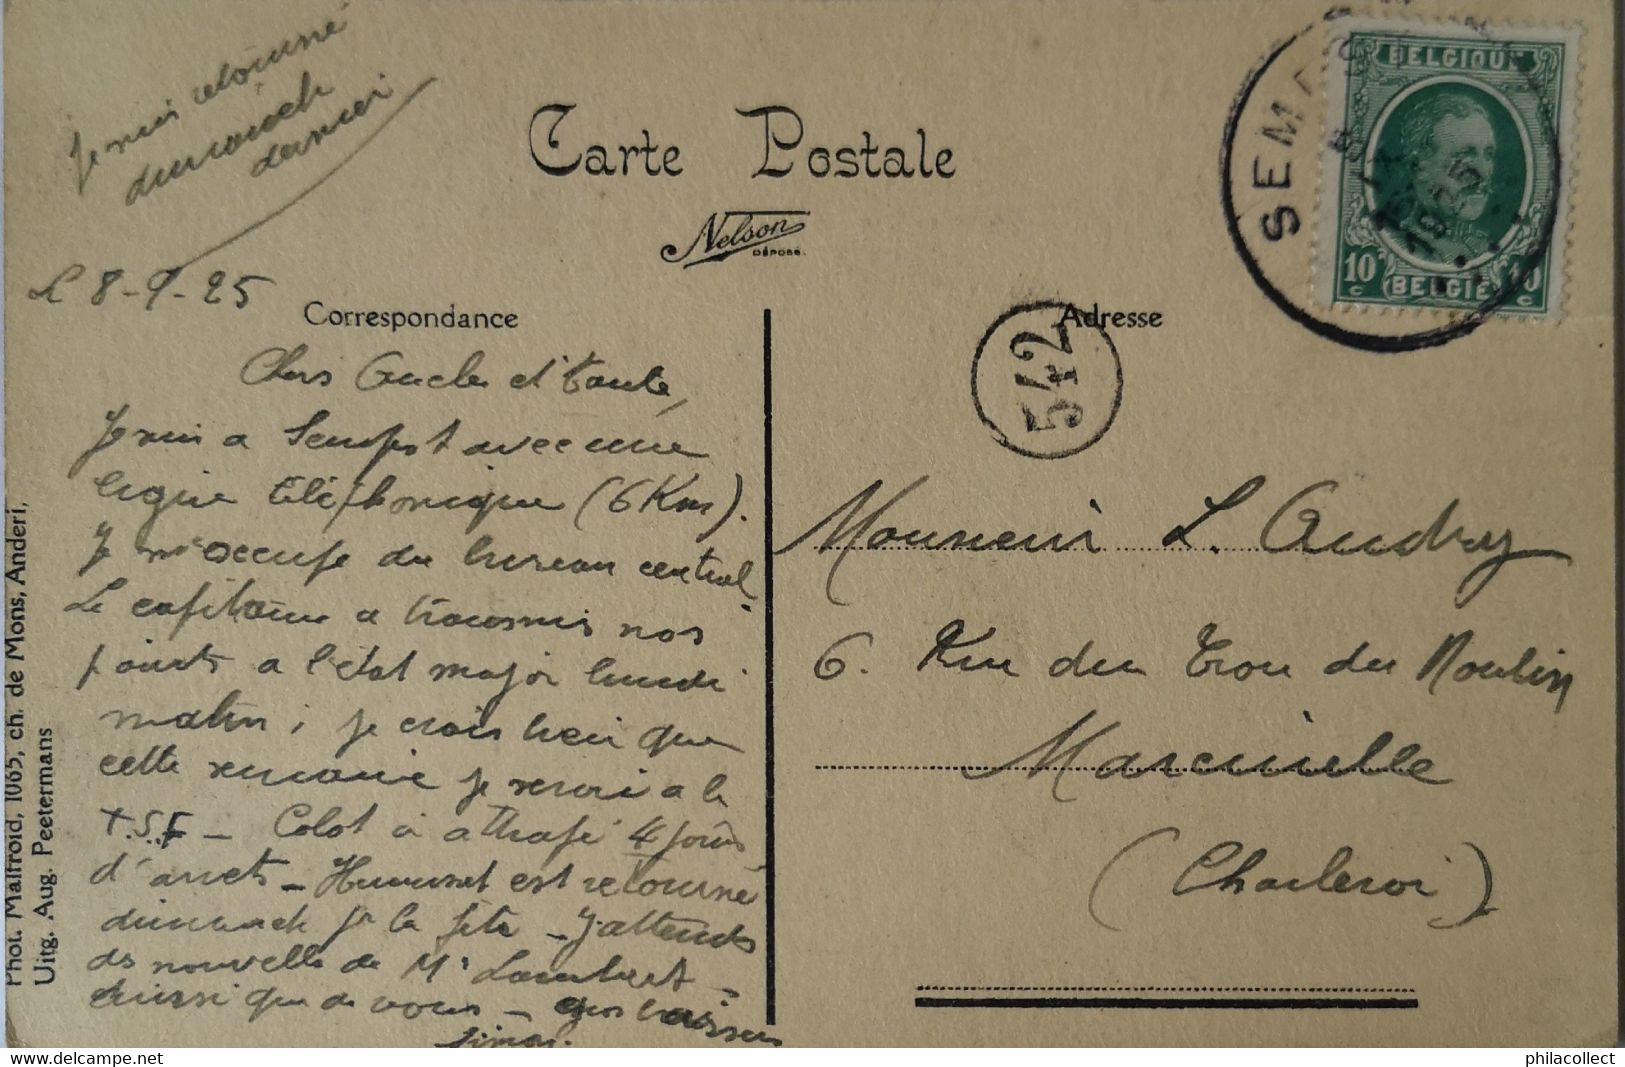 Je suis retourné
dimanche
dernier
Carte Postale
Nelson
DÉPOSÉ.
BELGIQUE
10 c
10 c
BELGIË
SEMP
1925
L 8-9-25
Correspondance
Adresse
542
Chers Oncle et tante,
Je suis a Sempst avec une
ligne téléphonique (6Km).
Je m'occupe du bureau central.
Le capitaine a transmis nos
points a l'état major lundi
matin; je crois bien que
cette semaine je serai a la
T.S.F - Colot a attrapé 4 jours
d'arrets - est retourné
dimanche pr la fête - J'attends
ds nouvelle de Mr Lambert
aussi que de vous - gros baisers
Simon.
Monsieur L. Audry
6. Rue du Trou du Moulin
Marcinelle
(Charleroi)
Phot. Malfroid, 1065, ch. de Mons, Anderl,
Uitg. Aug. Peetermans
philacollect